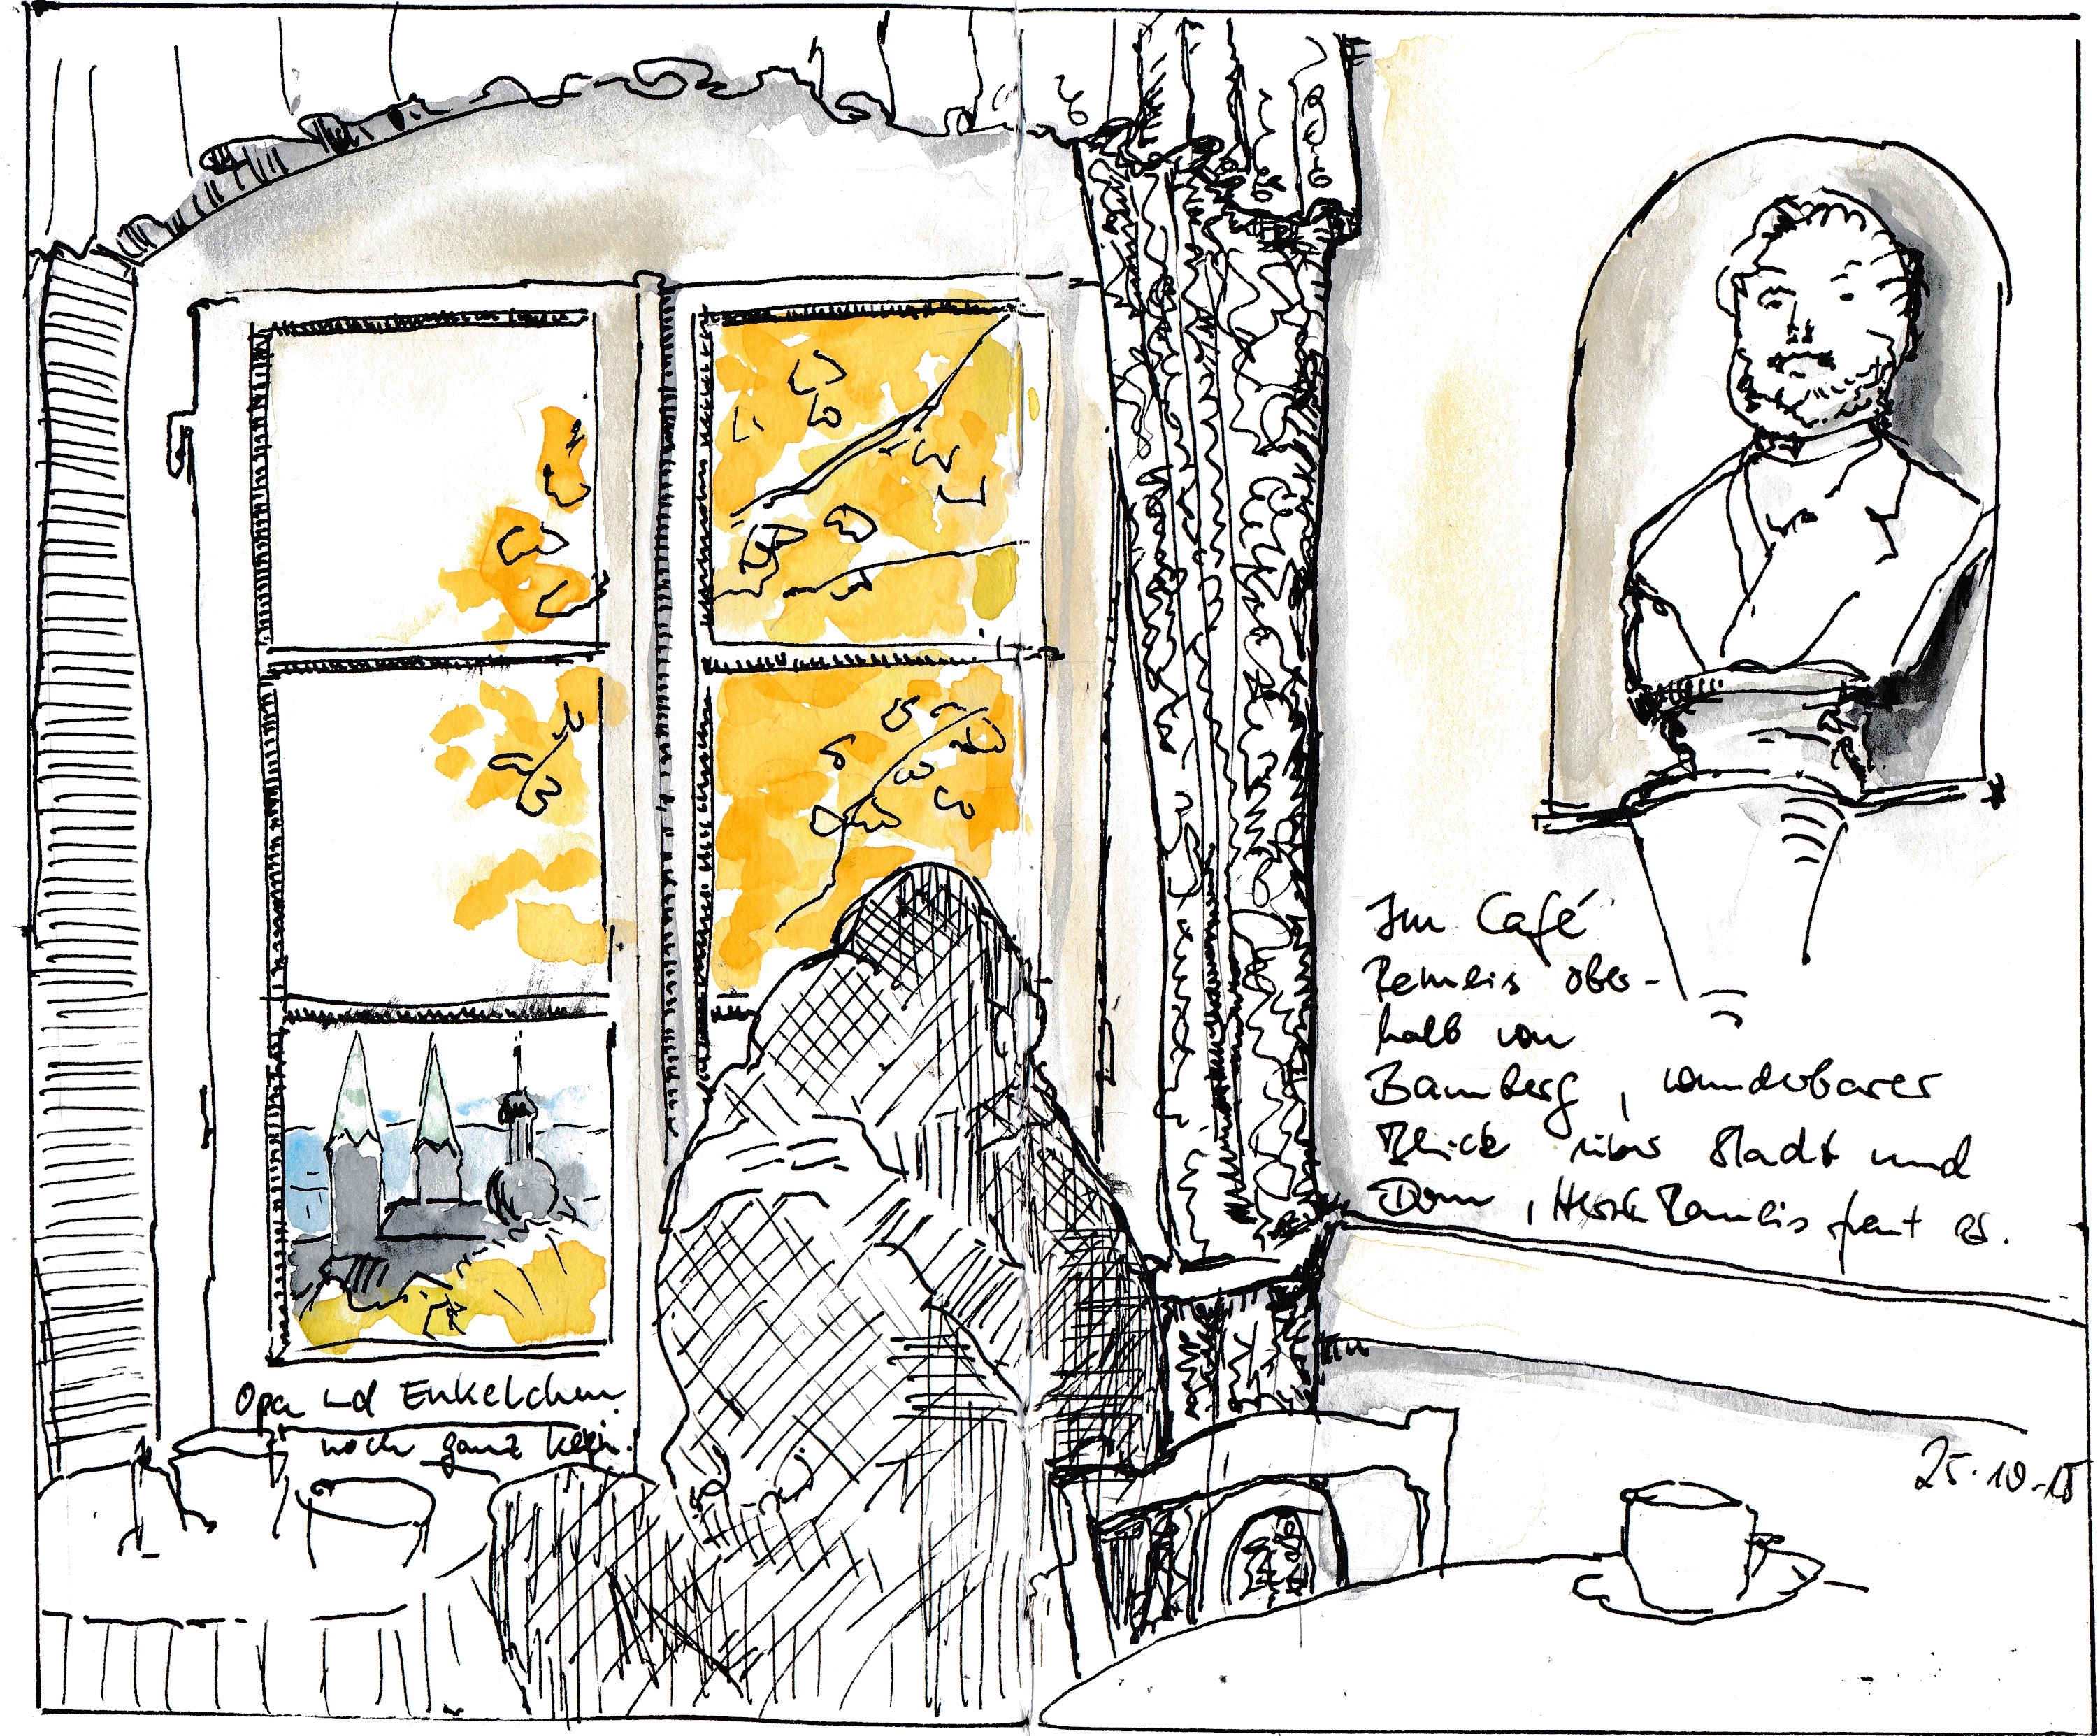 Im Café
Remeis ober-
halb von
Bamberg, wunderbarer
Blick über Stadt und
Dom, Herrn Remeis freut es.
Opa und Enkelchen
noch ganz klein.
25.10.15